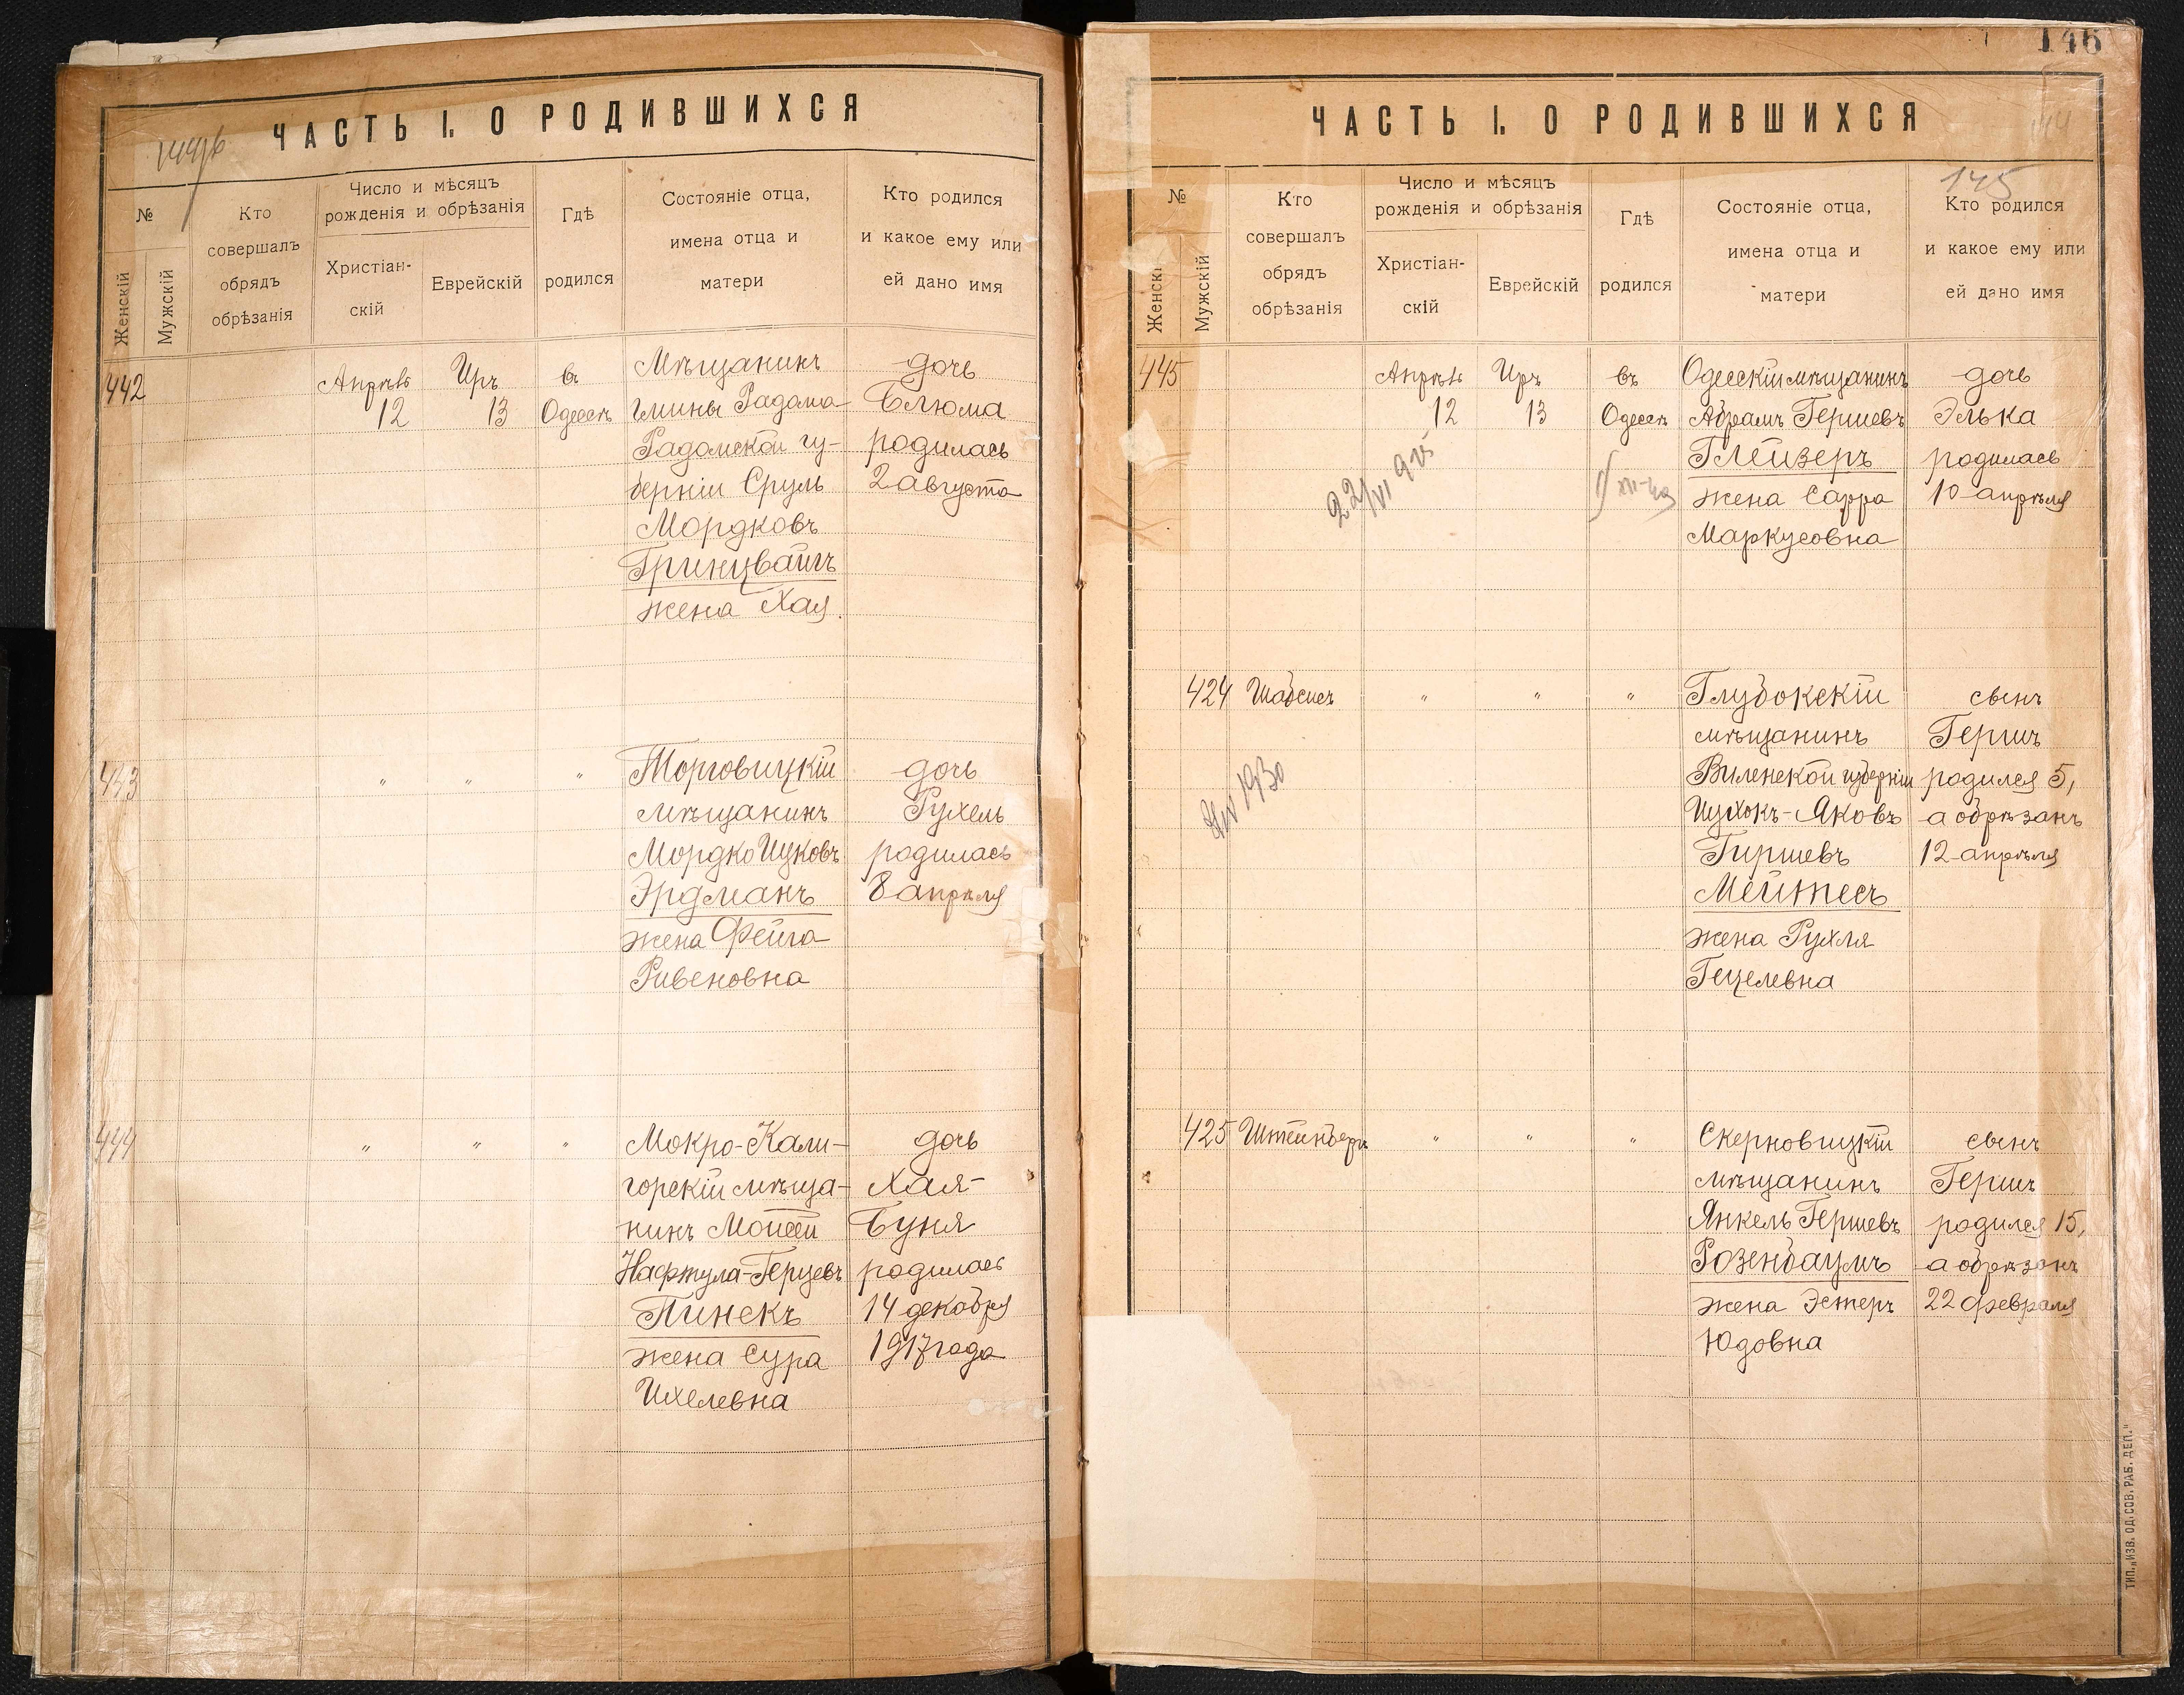 ЧАСТЬ I. О РОДИВШИХСЯ
№
Женскій
Мужскій
Кто
совершалъ
обрядъ
обрѣзанія
Число и мѣсяцъ
рожденія и обрѣзанія
Христіан-
скій
Еврейскій
Гдѣ
родился
Состояніе отца,
имена отца и
матери
Кто родился
и какое ему или
ей дано имя
442
Апрѣль
12
Иръ
13
въ
Одессѣ
Мѣщанинъ
гмины Радома
Радомской гу-
берніи Сруль
Мордковъ
Гринцвайгъ
жена Хая.
дочь
Блюма
родилась
2 августа
443
"
"
"
Торговицкій
мѣщанинъ
Мордко Ицковъ
Эрдманъ
жена Фейга
Ривеновна
дочь
Рухель
родилась
8 апрѣля
444
"
"
"
Мокро-Кали-
горскій мѣща-
нинъ Мойсей
Нафтула-Герцевъ
Пинскъ
жена Сура
Ихелевна
дочь
Хая-
Буня
родилась
14 декабря
1917 года
146
ЧАСТЬ I. О РОДИВШИХСЯ
145
№
Женскі
Мужскій
Кто
совершалъ
обрядъ
обрѣзанія
Число и мѣсяцъ
рожденія и обрѣзанія
Христіан-
скій
Еврейскій
Гдѣ
родился
Состояніе отца,
имена отца и
матери
Кто родился
и какое ему или
ей дано имя
445
Апрѣль
12
Иръ
13
въ
Одессѣ
Одесскій мѣщанинъ
Абрамъ Гершевъ
Глейзеръ
жена Сарра
Маркусовна
дочь
Элька
родилась
10 апрѣля
22/VI 925
424
Шабсисъ
"
"
"
Глубокскій
мѣщанинъ
Виленской губерніи
Ицхокъ-Яковъ
Гиршевъ
Мейтесъ
жена Рухля
Гецелевна
сынъ
Гершъ
родился 5,
а обрѣзанъ
12 апрѣля
1930
425
Штейнбергъ
"
"
"
Скерновицкій
мѣщанинъ
Янкель Гершевъ
Розенбаумъ
жена Эстеръ
Юдовна
сынъ
Гершъ
родился 15,
а обрѣзанъ
22 февраля
ТИП. „ИЗВ. ОД. СОВ. РАБ. ДЕП."